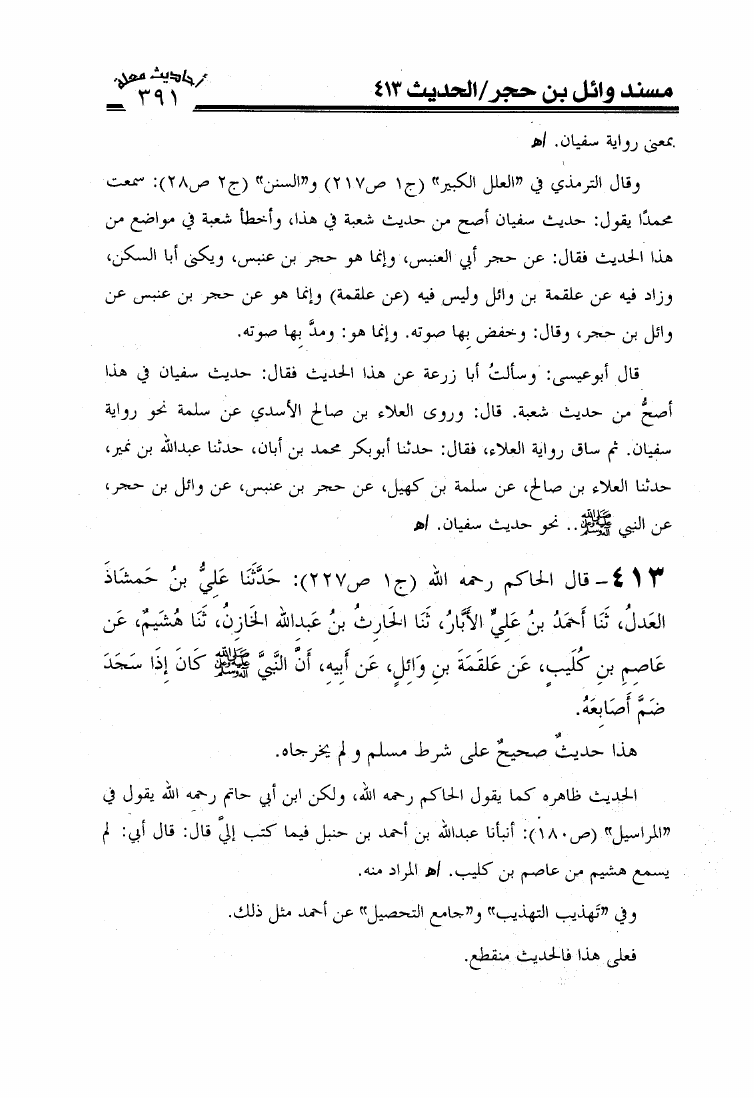 مسند وائل بن حجر/الحديث ٤١٣
أحاديث معلة
٣٩١
بمعنى رواية سفيان. اهـ
وقال الترمذي في «العلل الكبير» (ج١ ص٢١٧) و«السنن» (ج٢ ص٢٨): سمعت
محمدًا يقول: حديث سفيان أصح من حديث شعبة في هذا، وأخطأ شعبة في مواضع من
هذا الحديث فقال: عن حجر أبي العنبس، وإنما هو حجر بن عنبس، ويكنى أبا السكن،
وزاد فيه عن علقمة بن وائل وليس فيه (عن علقمة) وإنما هو عن حجر بن عنبس عن
وائل بن حجر، وقال: وخفض بها صوته. وإنما هو: ومدَّ بها صوته.
قال أبوعيسى: وسألتُ أبا زرعة عن هذا الحديث فقال: حديث سفيان في هذا
أصحُّ من حديث شعبة. قال: وروى العلاء بن صالح الأسدي عن سلمة نحو رواية
سفيان. ثم ساق رواية العلاء، فقال: حدثنا أبوبكر محمد بن أبان، حدثنا عبدالله بن نمير،
حدثنا العلاء بن صالح، عن سلمة بن كهيل، عن حجر بن عنبس، عن وائل بن حجر،
عن النبي ﷺ.. نحو حديث سفيان. اهـ
٤١٣- قال الحاكم رحمه الله (ج١ ص٢٢٧): حَدَّثَنَا عَلِيُّ بنُ حَمشَاذَ
العَدلُ، ثَنَا أَحمَدُ بنُ عَلِيٍّ الأَبَّارُ، ثَنَا الحَارِثُ بنُ عَبدِالله الخَازِنُ، ثَنَا هُشَيمٌ، عَن
عَاصِمِ بنِ كُلَيبٍ، عَن عَلقَمَةَ بنِ وَائِلٍ، عَن أَبِيهِ، أَنَّ النَّبِيَّ ﷺ كَانَ إِذَا سَجَدَ
ضَمَّ أَصَابِعَهُ.
هذا حديثٌ صحيحٌ على شرط مسلم و لم يخرجاه.
الحديث ظاهره كما يقول الحاكم رحمه الله، ولكن ابن أبي حاتم رحمه الله يقول في
«المراسيل» (ص١٨٠): أنبأنا عبدالله بن أحمد بن حنبل فيما كتب إليَّ قال: قال أبي: لم
يسمع هشيم من عاصم بن كليب. اهـ المراد منه.
وفي «تهذيب التهذيب» و«جامع التحصيل» عن أحمد مثل ذلك.
فعلى هذا فالحديث منقطع.